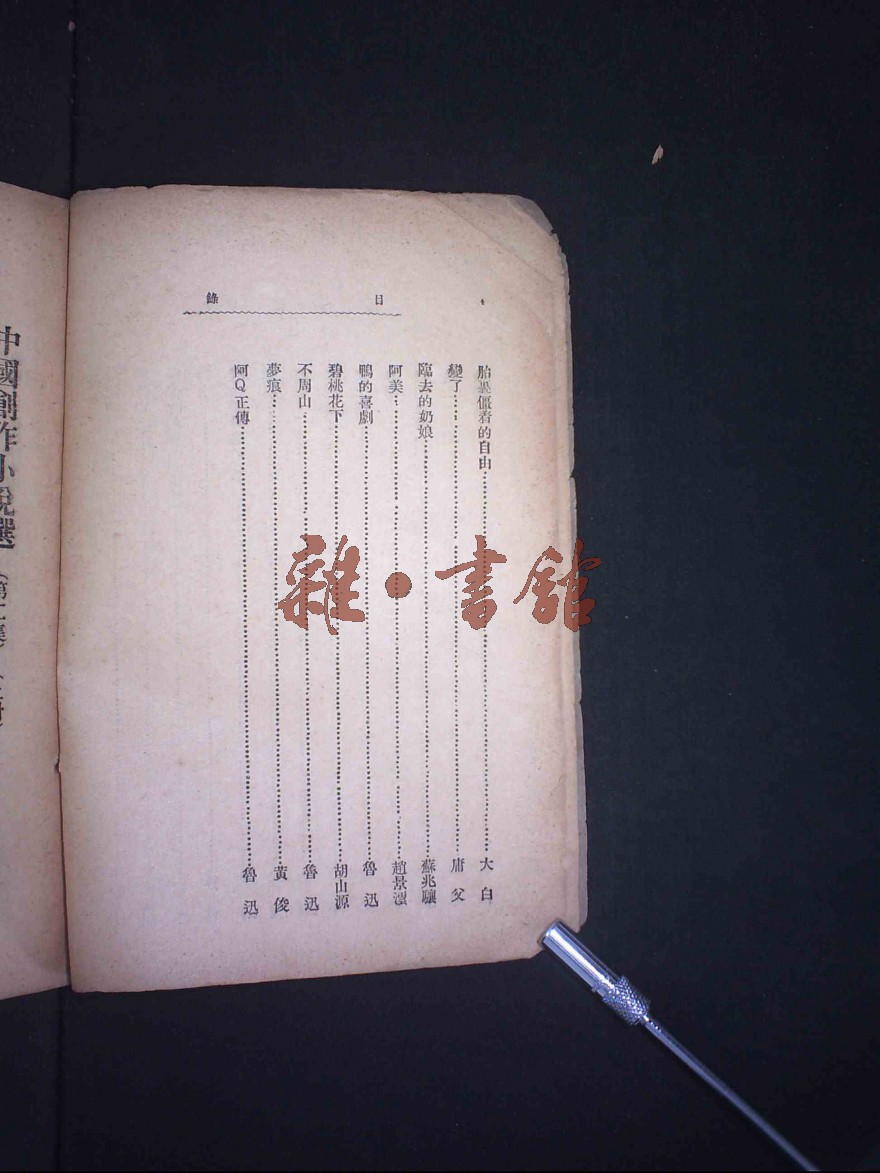 目錄
胎異僵者的自由 大白
變了 庸父
臨去的奶娘 蘇兆驤
阿美 趙景澐
鴨的喜劇 魯迅
碧桃花下 胡山源
不周山 魯迅
夢痕 黃俊
阿Q正傳 魯迅
中國創作小說選
雜·書館